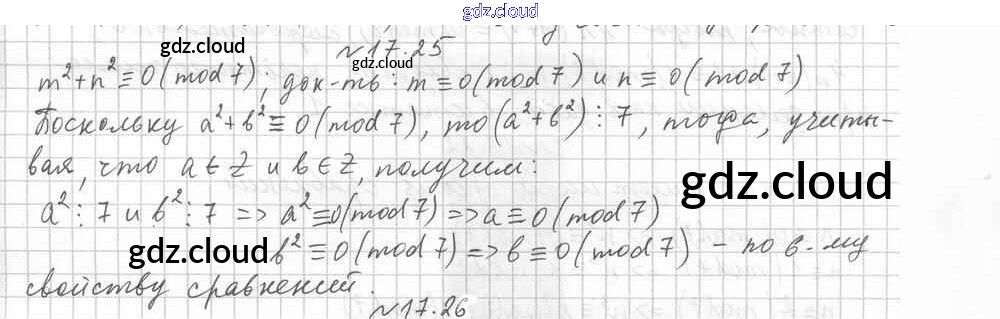 gdz.cloud
gdz.cloud
№17.25
m²+n²≡0(mod 7); док-ть: m≡0(mod 7) и n≡0(mod 7)
Поскольку a²+b²≡0(mod 7), то (a²+b²)⋮7, тогда, учиты-
вая, что a∈Z и b∈Z, получим:
gdz.cloud
a²⋮7 и b²⋮7 => a²≡0(mod 7) => a≡0(mod 7)
gdz.cloud
b²≡0(mod 7) => b≡0(mod 7) - по 6-му
свойству сравнений.
№17.26